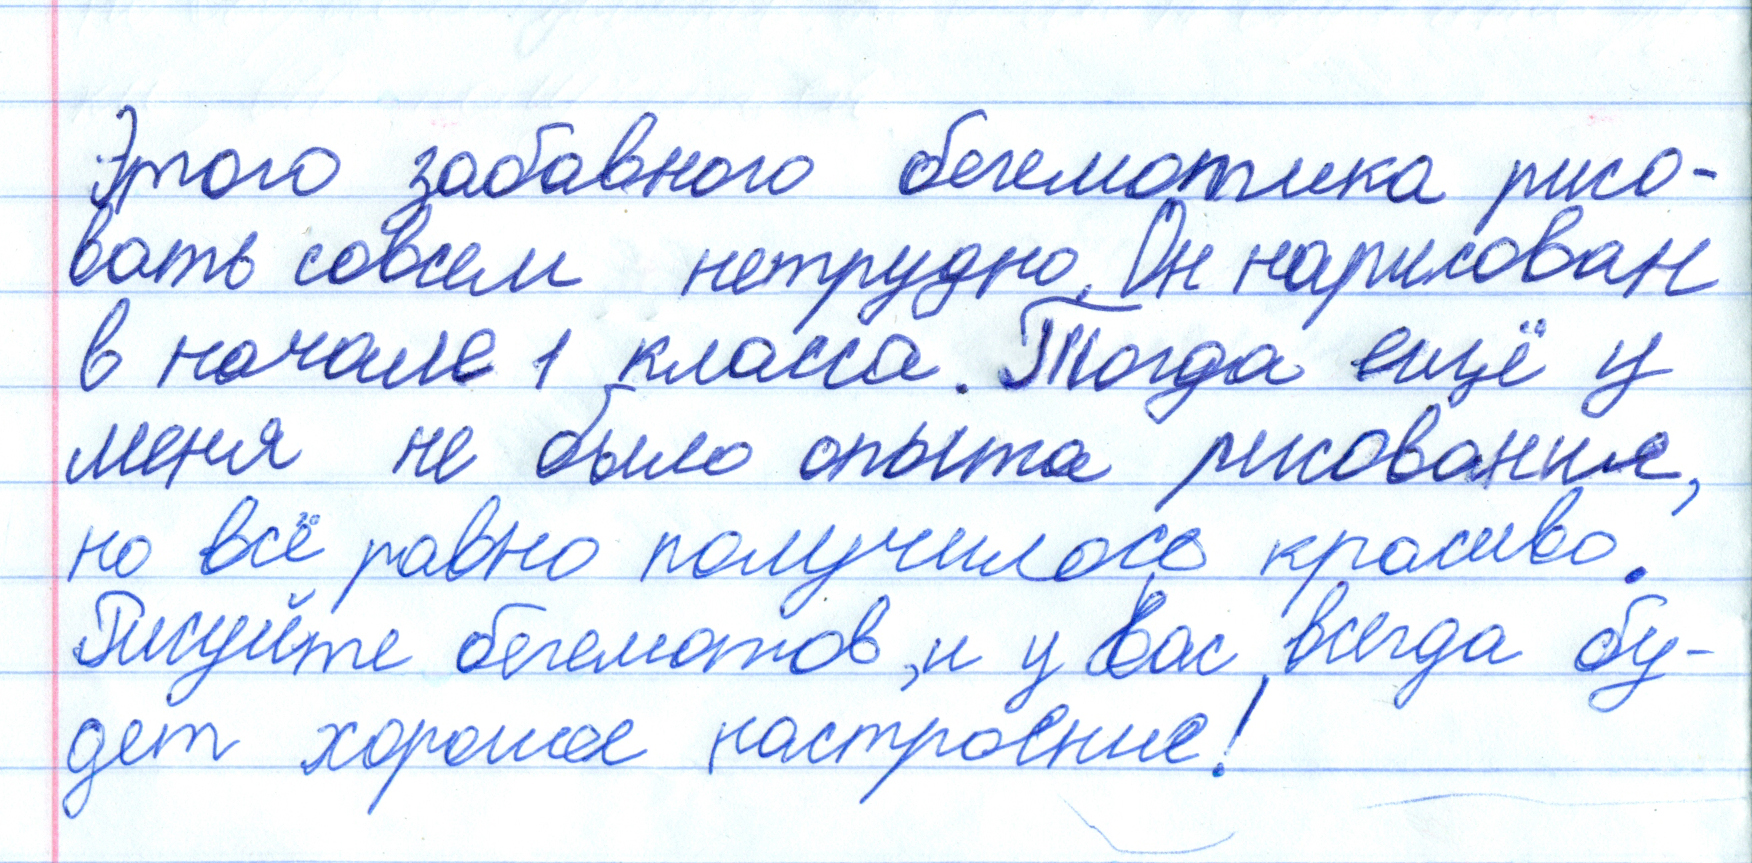 Этого забавного бегемотика рисо-
вать совсем нетрудно. Он нарисован
в начале 1 класса. Тогда ещё у
меня не было опыта рисования,
но всё равно получилось красиво.
Рисуйте бегемотов, и у вас всегда бу-
дет хорошее настроение!